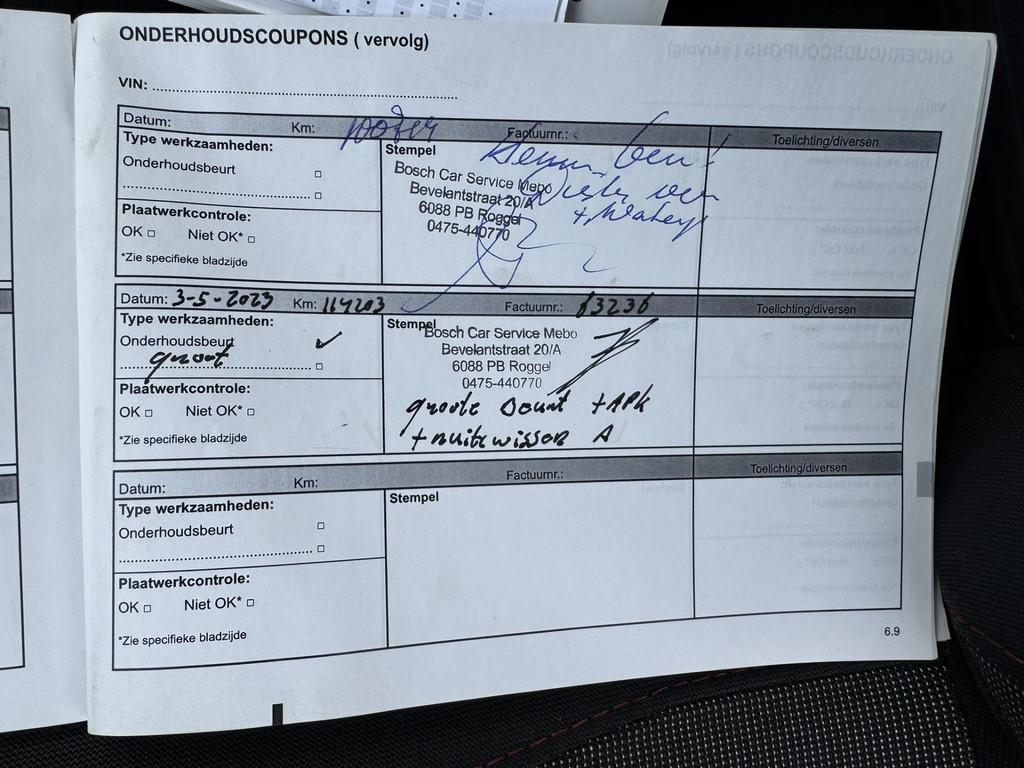 ONDERHOUDSCOUPONS ( vervolg)
VIN:
Datum: Km: Factuurnr.: Toelichting/diversen
Type werkzaamheden:
Onderhoudsbeurt □
□
Plaatwerkcontrole:
OK □ Niet OK* □
*Zie specifieke bladzijde
Stempel
Bosch Car Service Mebo
Bevelantstraat 20/A
6088 PB Roggel
0475-440770
Datum: 3-5-2023 Km: 114203 Factuurnr.: 63236 Toelichting/diversen
Type werkzaamheden:
Onderhoudsbeurt ✓
groot □
Plaatwerkcontrole:
OK □ Niet OK* □
*Zie specifieke bladzijde
Stempel
Bosch Car Service Mebo
Bevelantstraat 20/A
6088 PB Roggel
0475-440770
groote beurt + APK
+ ruitewissen A
Datum: Km: Factuurnr.: Toelichting/diversen
Type werkzaamheden:
Onderhoudsbeurt □
□
Plaatwerkcontrole:
OK □ Niet OK* □
*Zie specifieke bladzijde
Stempel
6.9